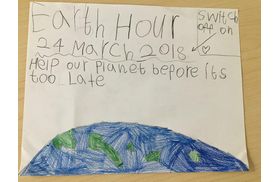 Earth Hour
Switch
off on
24 March 2018
Help our planet before its
too Late